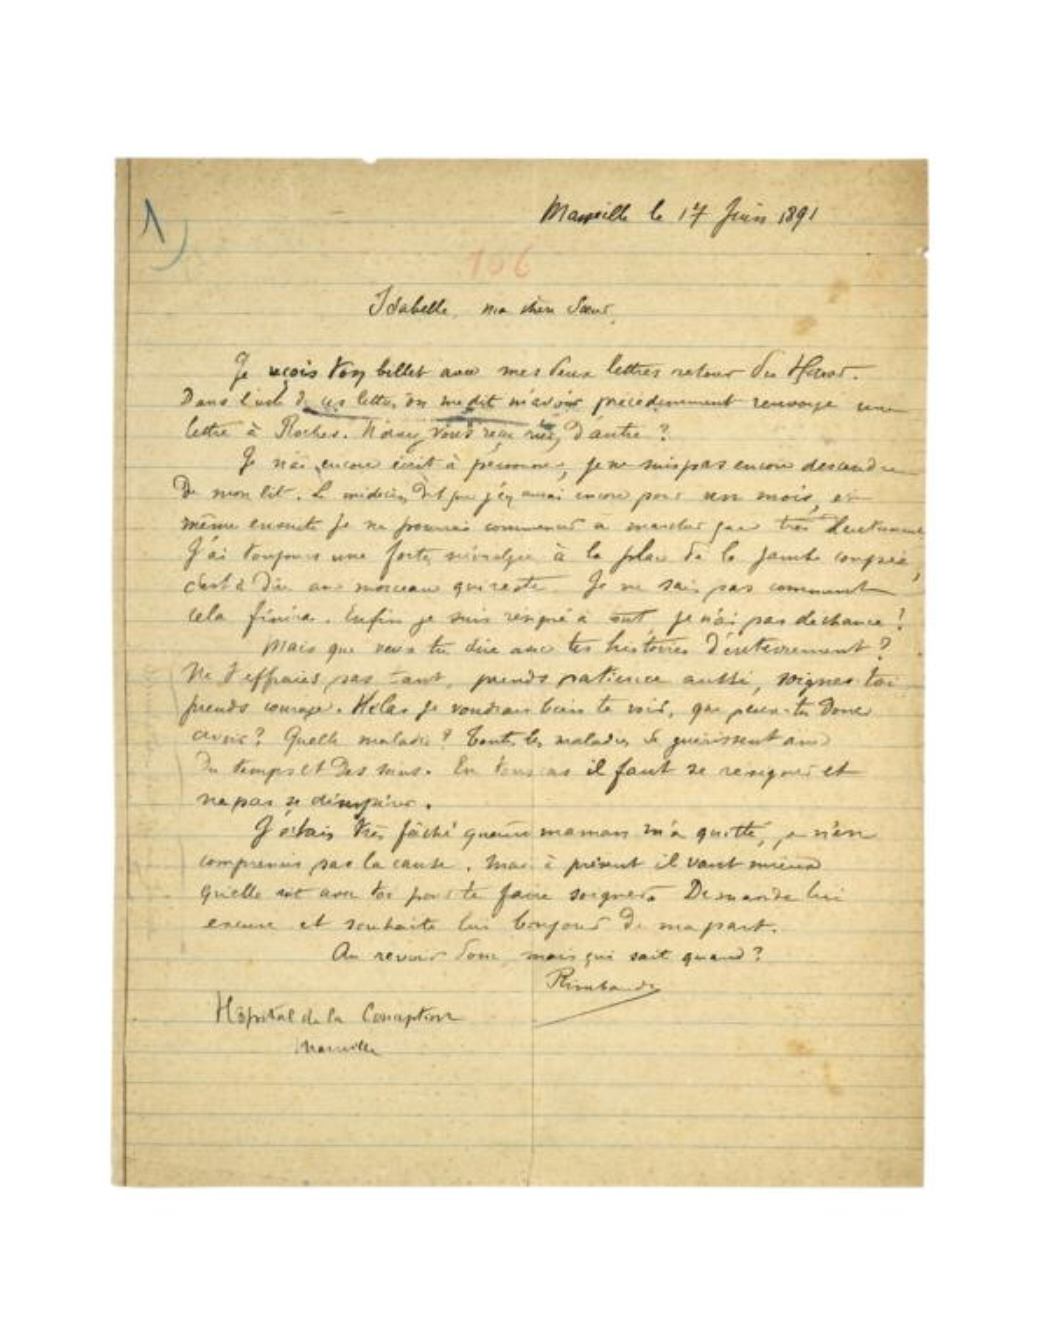 1)
Marseille le 17 Juin 1891
106
Isabelle, ma chère sœur,
Je reçois ton billet avec mes deux lettres retour du Harar.
Dans l'une de ces lettres on me dit m'avoir précédemment renvoyé une
lettre à Roches. N'avez vous reçu rien d'autre ?
Je n'ai encore écrit à personne, je ne suis pas encore descendu
de mon lit. Le médecin dit que j'en aurai encore pour un mois, et
même ensuite je ne pourrai commencer à marcher que très lentement
J'ai toujours une forte névralgie à la place de la jambe coupée,
c'est à dire au morceau qui reste. Je ne sais pas comment
cela finira. Enfin je suis résigné à tout, je n'ai pas de chance !
Mais que veux tu dire avec tes histoires d'enterrement ?
Ne t'effraies pas tant, prends patience aussi, soignes toi
prends courage. Hélas je voudrais bien te voir, que peux-tu donc
avoir ? Quelle maladie ? Toutes les maladies se guérissent avec
du temps et des soins. En tous cas il faut se résigner et
ne pas se désespérer.
J'étais très fâché quand maman m'a quitté, je n'en
comprenais pas la cause. Mais à présent il vaut mieux
qu'elle soit avec toi pour te faire soigner. Demande lui
excuse et souhaite lui bonjour de ma part.
Au revoir donc, mais qui sait quand ?
Rimbaud
Hôpital de la Conception
Marseille